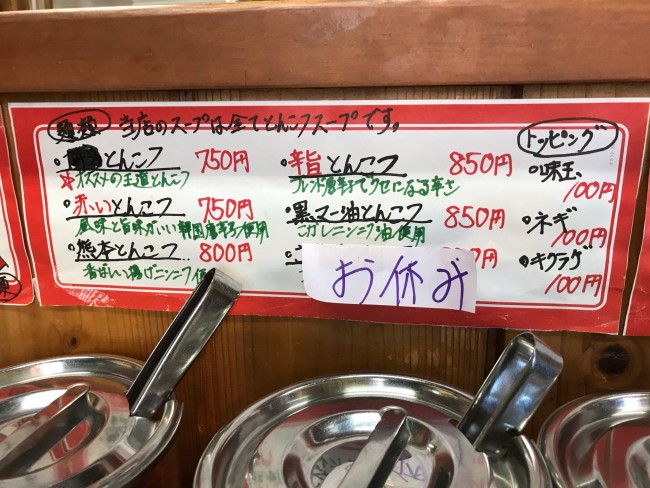 麺類 当店のスープは全てとんこつスープです。
とんこつ 750円
オススメの王道とんこつ
赤いとんこつ 750円
風味と旨味がいい韓国唐辛子使用
熊本とんこつ 800円
香ばしい揚げニンニク使
辛旨とんこつ 850円
ブレンド唐辛子でクセになる辛さ
黒マー油とんこつ 850円
こがしニンニク油使用
円
お休み
トッピング
味玉 100円
ネギ 100円
キクラゲ 100円